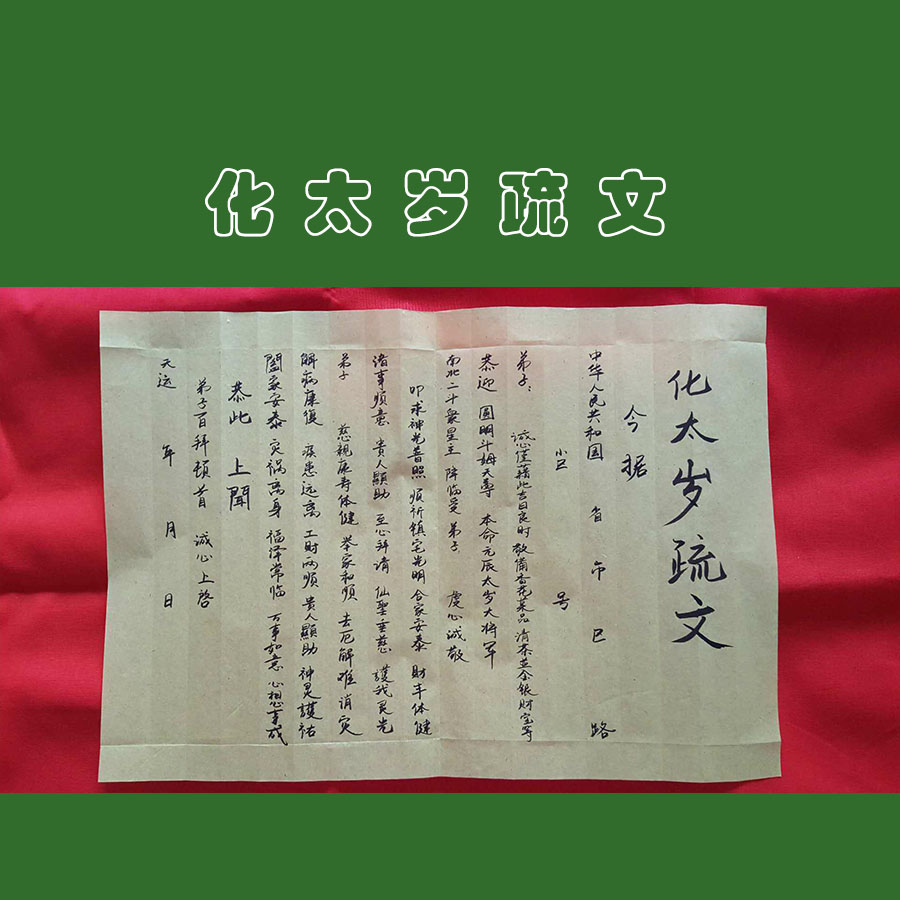 化太岁疏文
化太岁疏文
今据
中华人民共和国 省 市 区 路
小区 号
弟子： 诚心谨藉此吉日良时 敬備香花菜品 清茶並金银财宝等
恭迎 圆明斗姆天尊 本命元辰太岁大将军
南北二斗衆星主 降临受 弟子 虔心诚敬
叩求神光普照 顺祈镇宅光明 合家安泰 财丰体健
诸事顺意 贵人顯助 至心拜请 仙聖垂慈 護我灵光
弟子 慈親康寿体健 举家和顺 去厄解难 消灾
解病康復 疾患远离 工财两顺 贵人顯助 神灵護祐
闔家安泰 灾祸离身 福泽常临 万事如意 心想事成
恭此 上聞
弟子百拜顿首 诚心上啓
天运 年 月 日